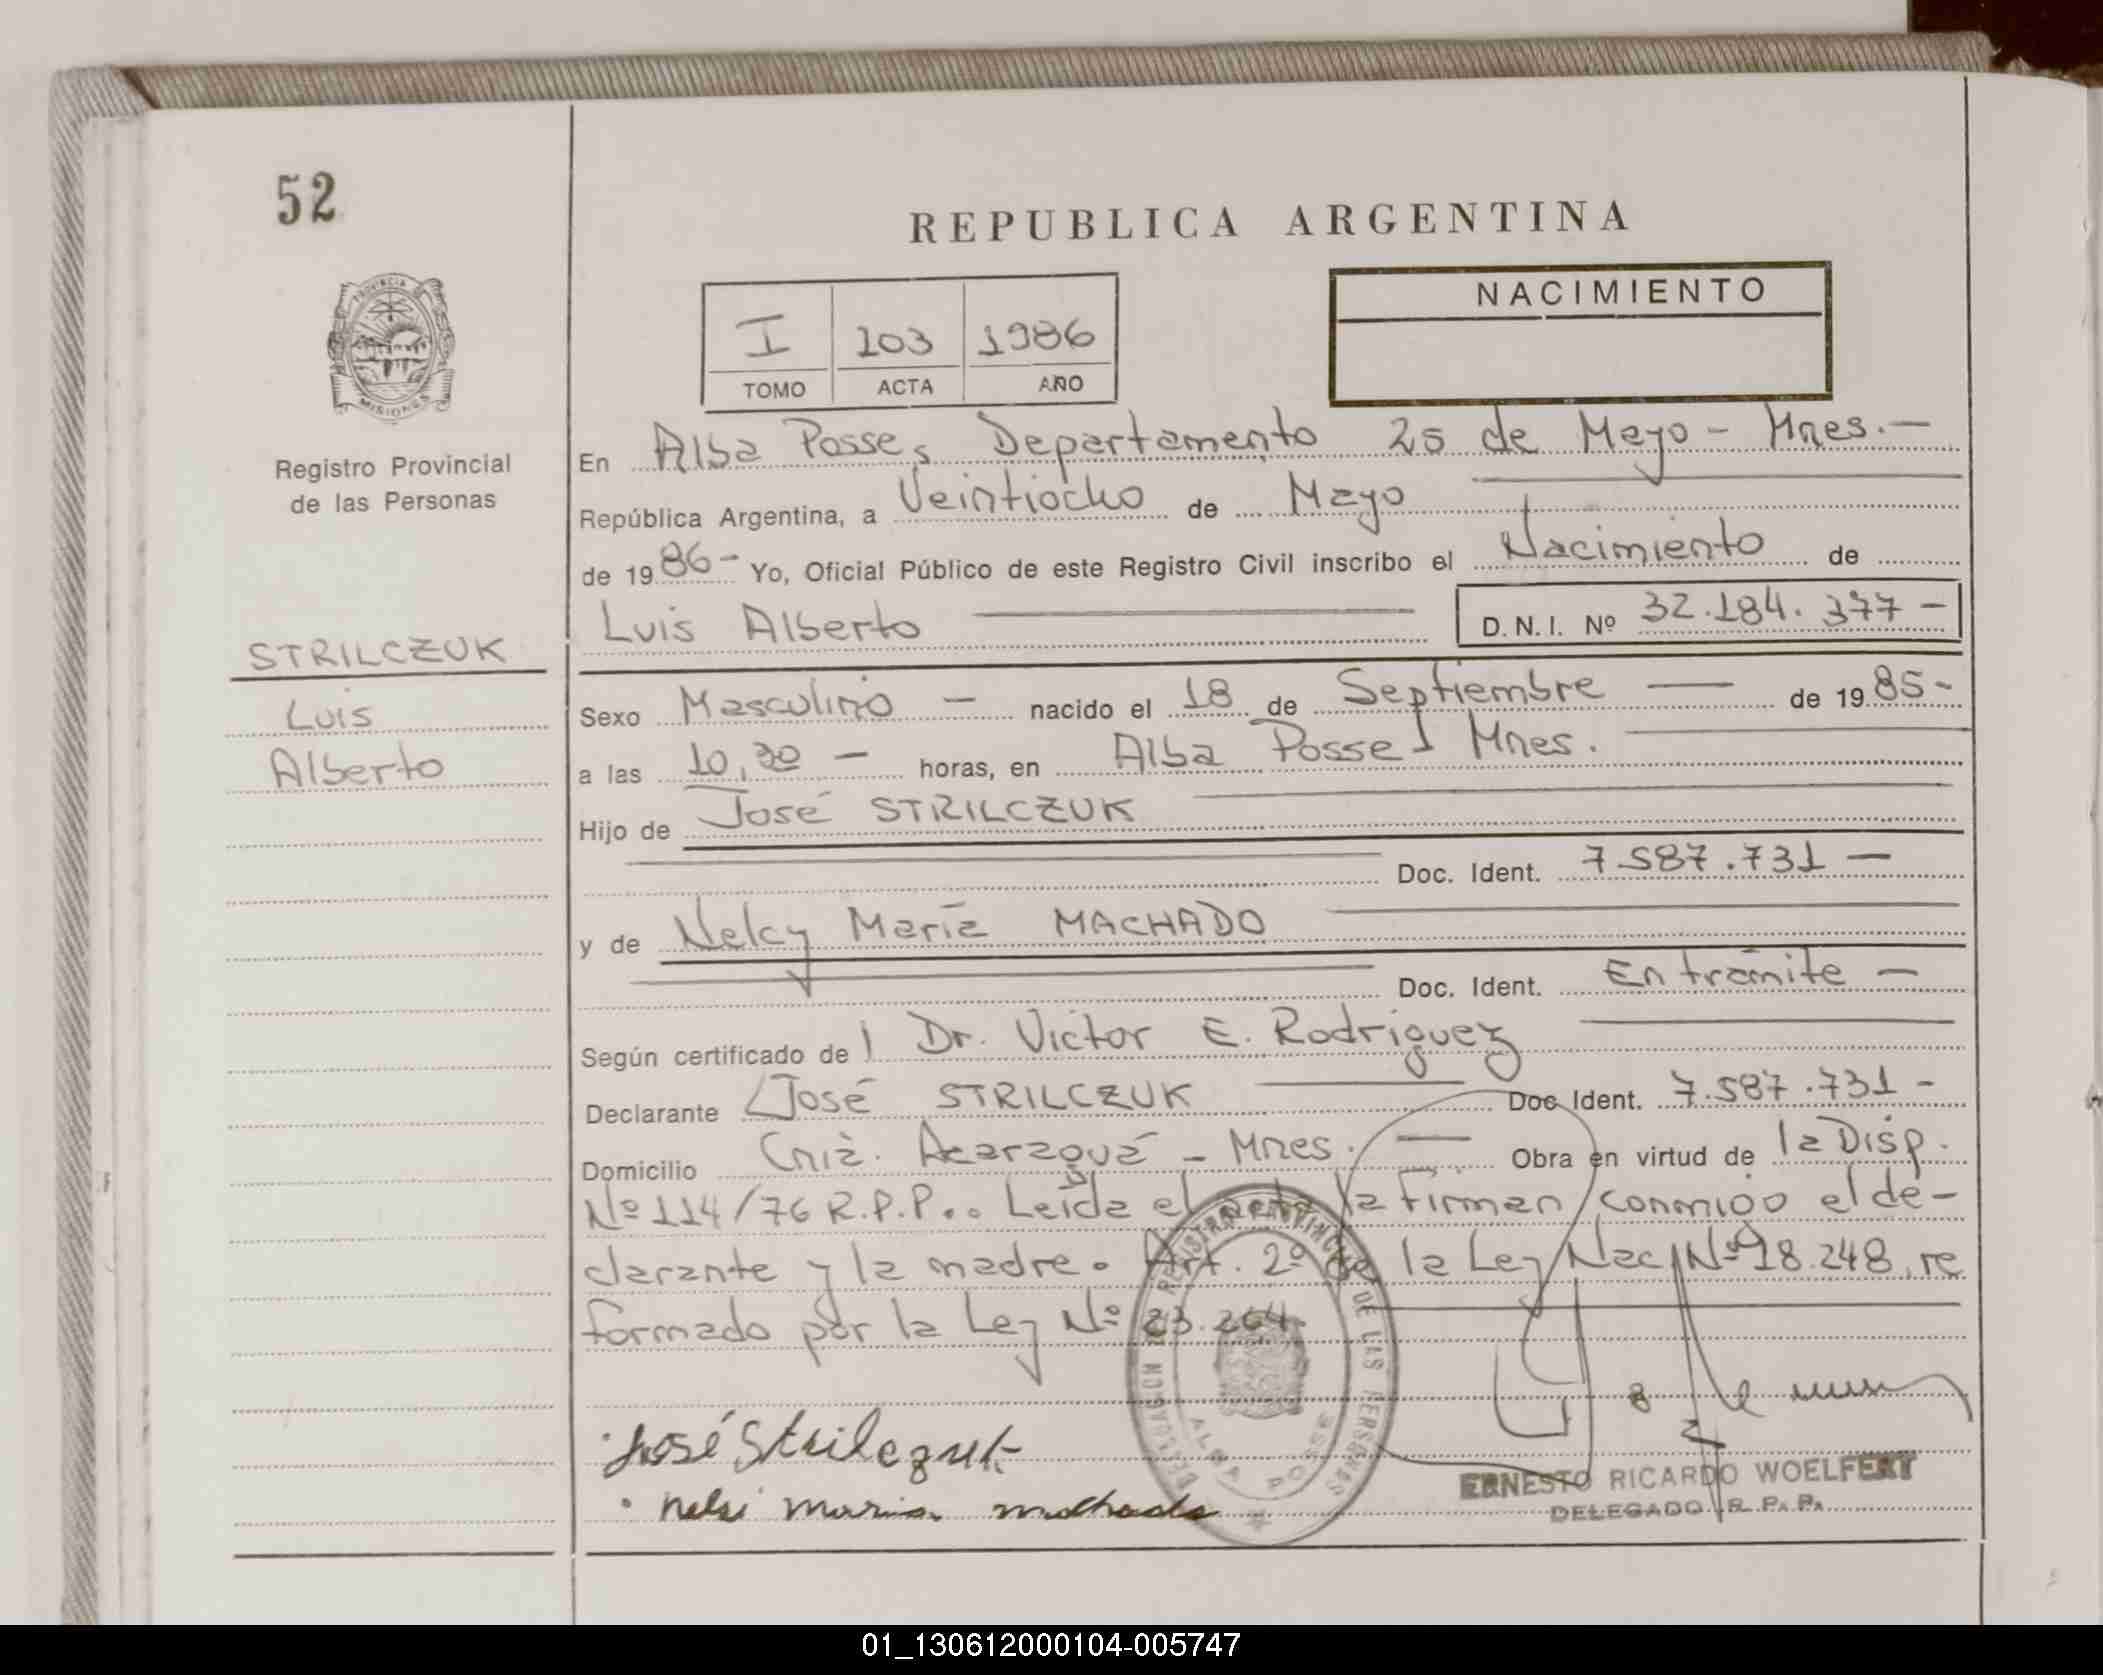 52
REPUBLICA ARGENTINA
PROVINCIA DE
MISIONES
Registro Provincial
de las Personas
NACIMIENTO
I 103 1986
TOMO ACTA AÑO
En Alba Posse, Departamento 25 de Mayo - Mnes. -
República Argentina, a Veintiocho de Mayo
de 1986 - Yo, Oficial Público de este Registro Civil inscribo el Nacimiento de
Luis Alberto D.N.I. Nº 32.184.377 -
STRILCZUK
Luis
Alberto
Sexo Masculino - nacido el 18 de Septiembre — de 1985 -
a las 10,30 - horas, en Alba Posse, Mnes.
Hijo de José STRILCZUK
Doc. Ident. 7.587.731 -
y de Nelcy María MACHADO
Doc. Ident. En trámite -
Según certificado de Dr. Victor E. Rodriguez
Declarante José STRILCZUK Doc Ident. 7.587.731 -
Domicilio Cnia. Acaraguá - Mnes. — Obra en virtud de la Disp.
Nº 114/76 R.P.P.. Leída el acta la firman conmigo el de-
clarante y la madre. Art. 2º de la Ley Nac Nº 18.248, re
formado por la Ley Nº 23.264.
DELEGACION REGISTRO PROVINCIAL DE LAS PERSONAS
ALBA POSSE
José Strilczuk
Nelsi maria machado
ERNESTO RICARDO WOELFERT
DELEGADO R. P. P.
01_130612000104-005747